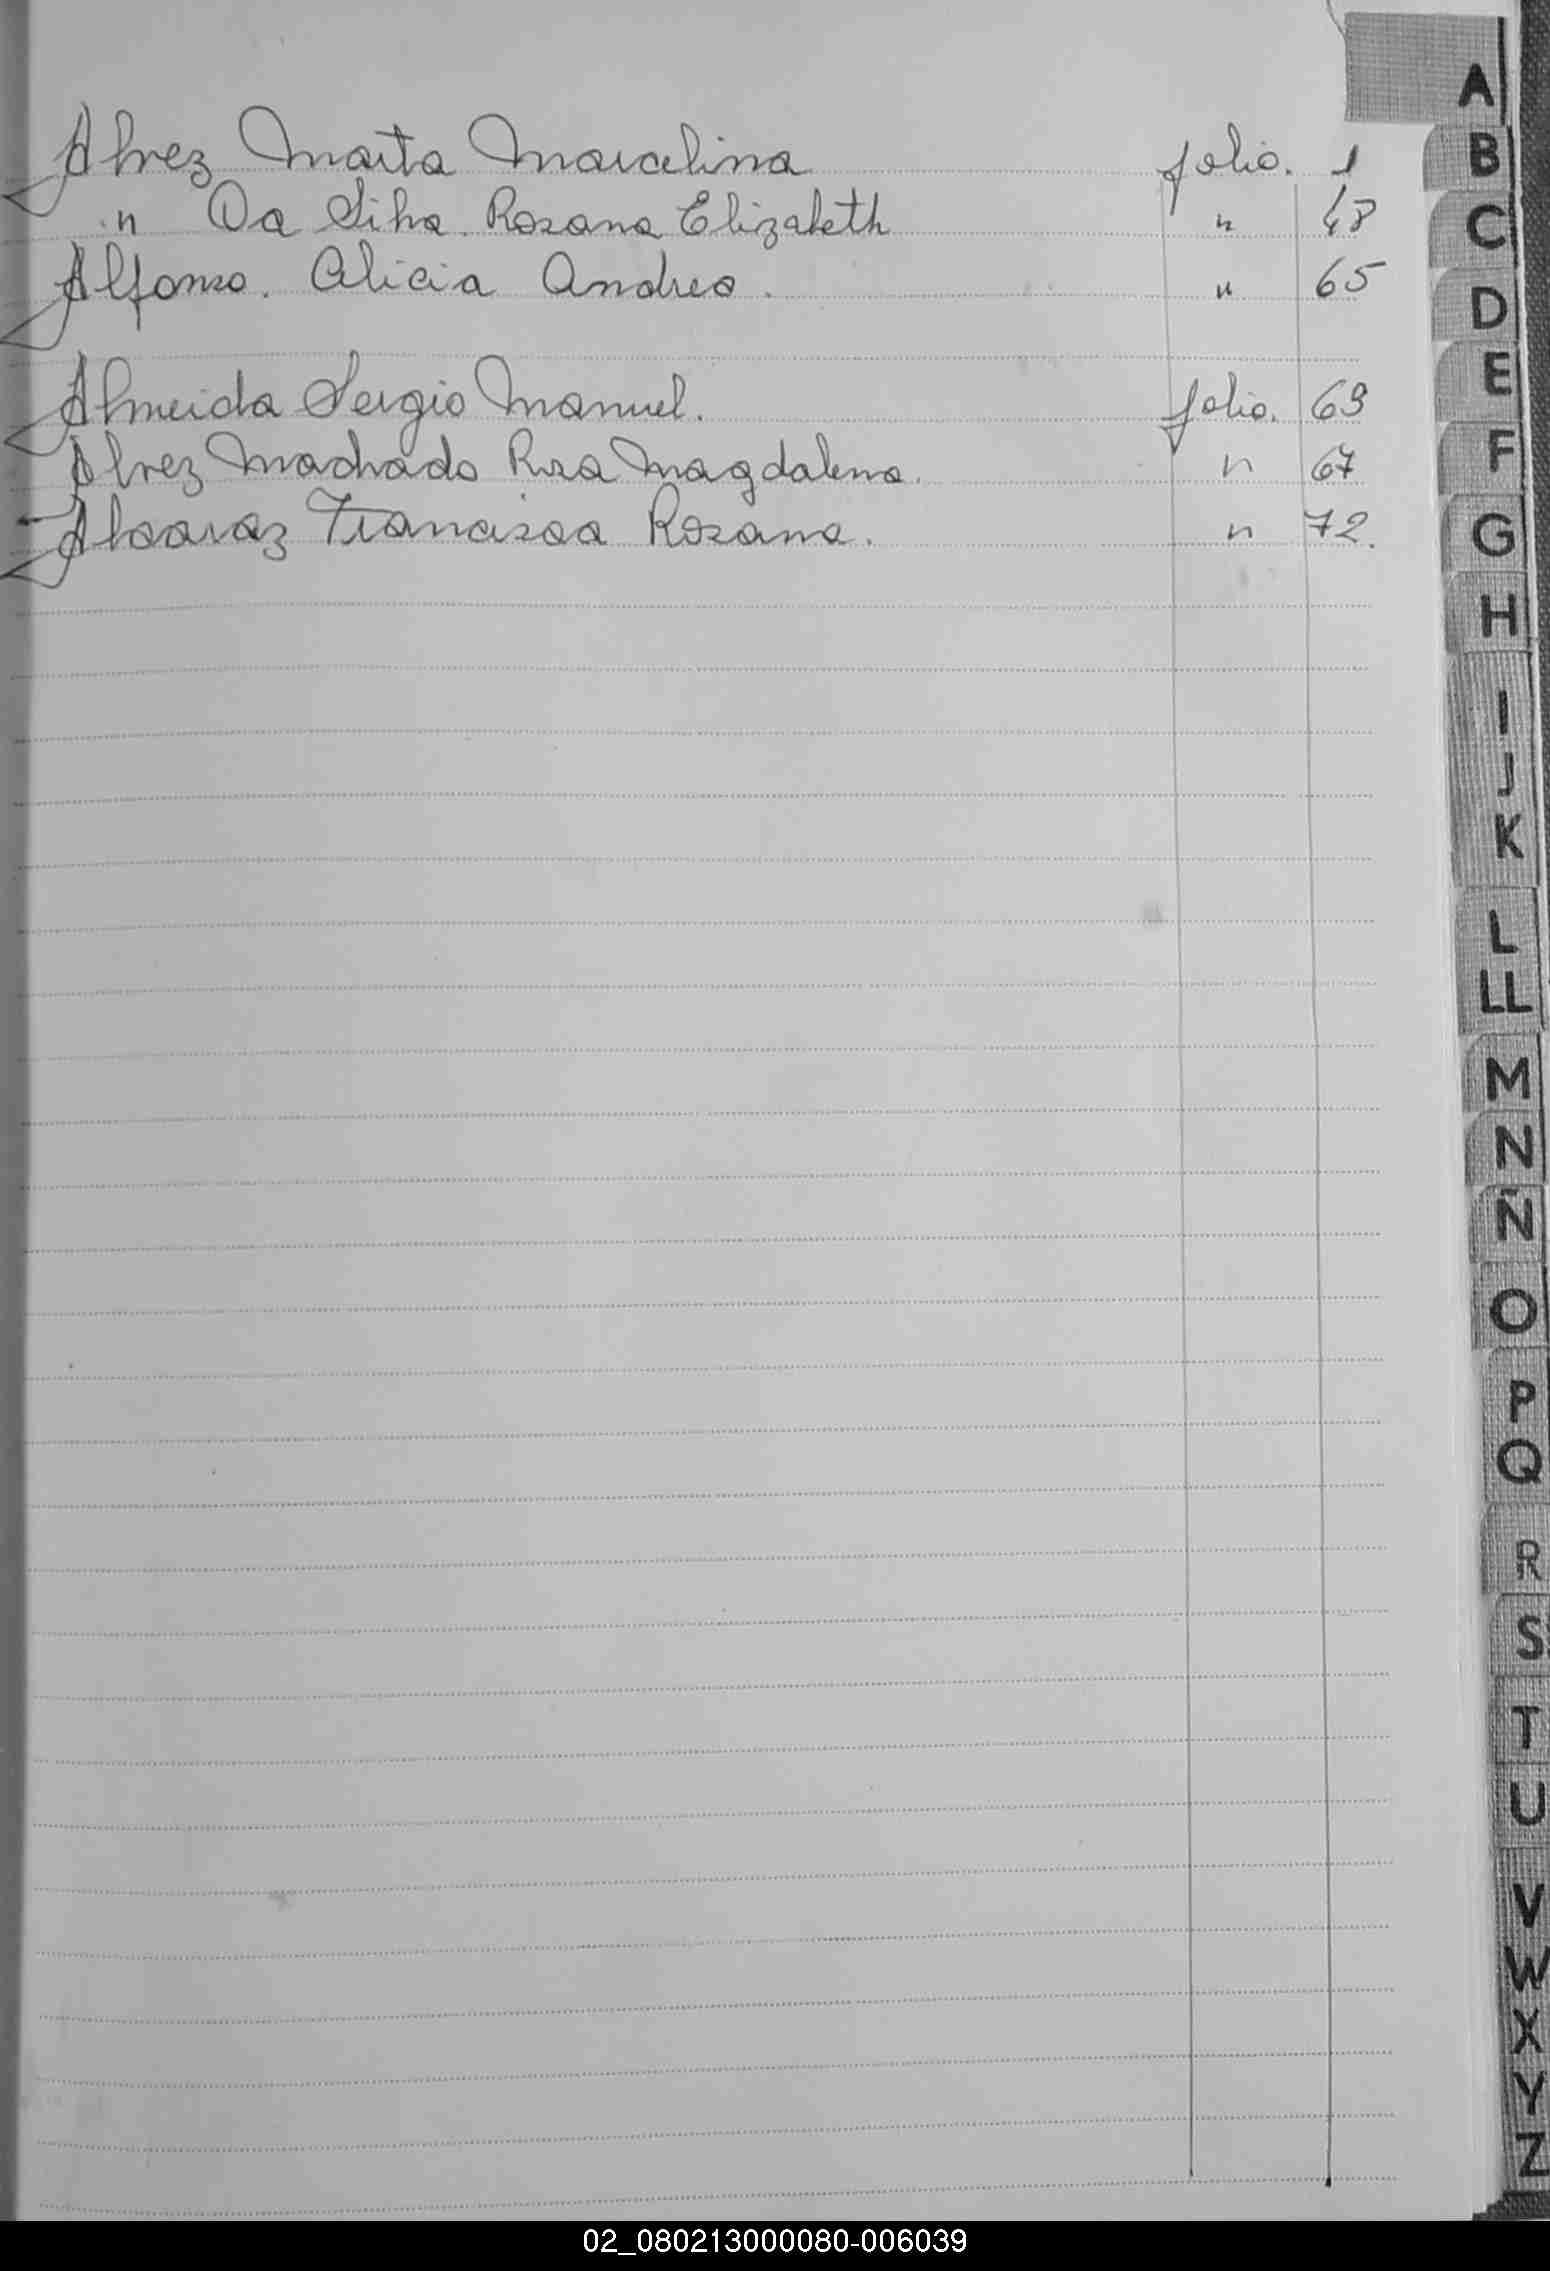 Alvez Marta Marcelina folio. 1
" Da Silva. Rosana Elizabeth " 48
Alfonso. Alicia Andrea. " 65
Almeida Sergio Manuel. folio. 69
Alvez Machado Rosa Magdalena. " 67
Alcaraz Francisca Rosana. " 72.
A
B
C
D
E
F
G
H
I
J
K
L
LL
M
N
Ñ
O
P
Q
R
S
T
U
V
W
X
Y
Z
02_080213000080-006039